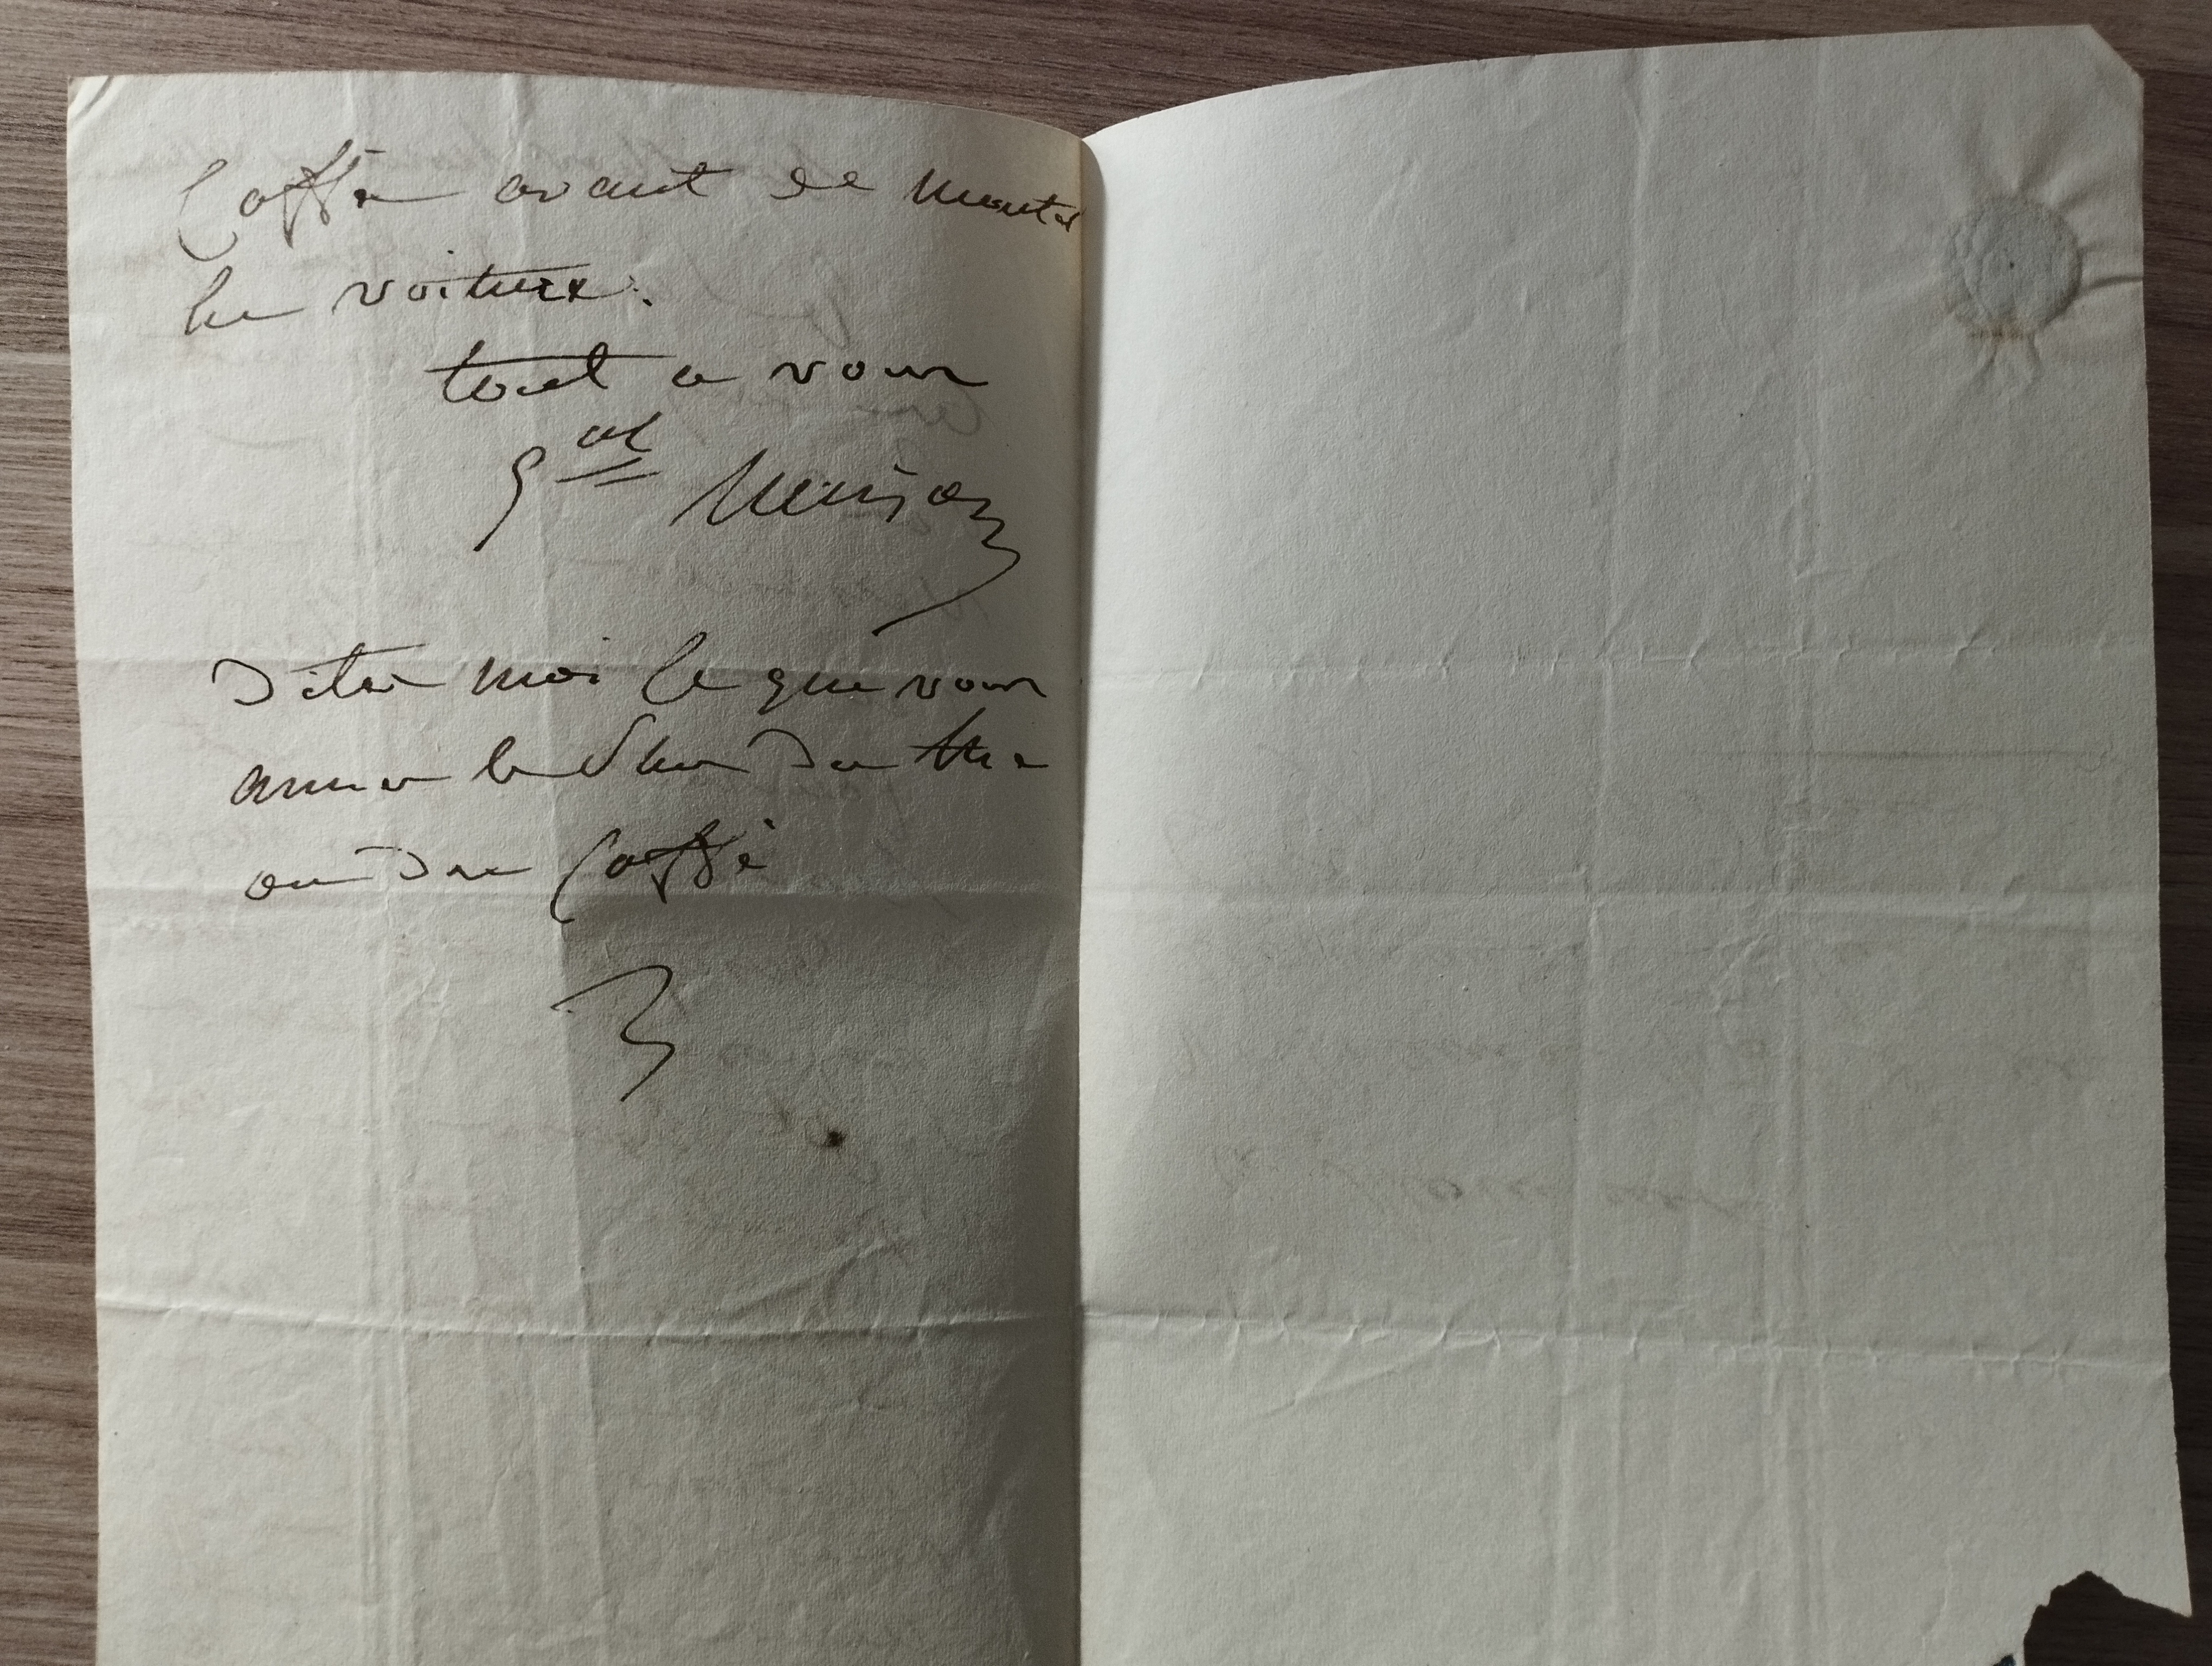 Caffé avant de monter
en voiture.
tout a vous
Gal Maison
Dites moi ce que vous
aimer le plus du thé
ou du Caffé